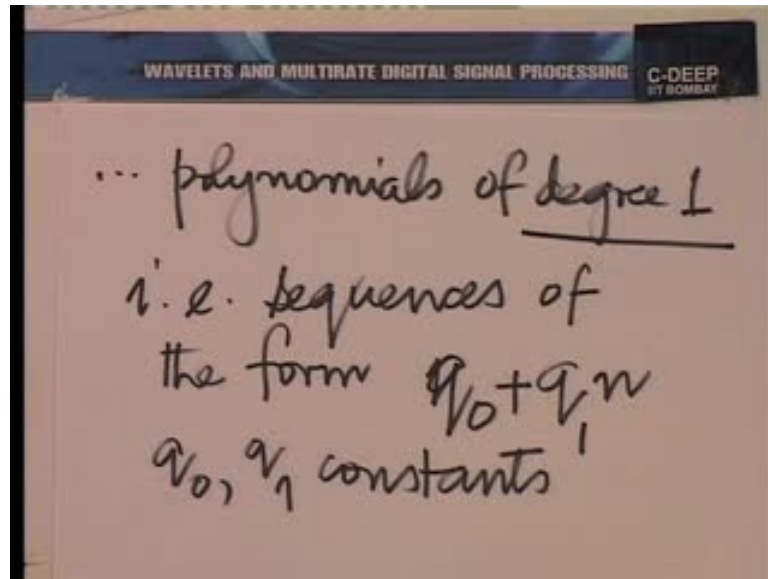 WAVELETS AND MULTIRATE DIGITAL SIGNAL PROCESSING
C-DEEP
IIT BOMBAY
... polynomials of degree 1
i.e. sequences of
the form q₀+q₁n
q₀, q₁ constants